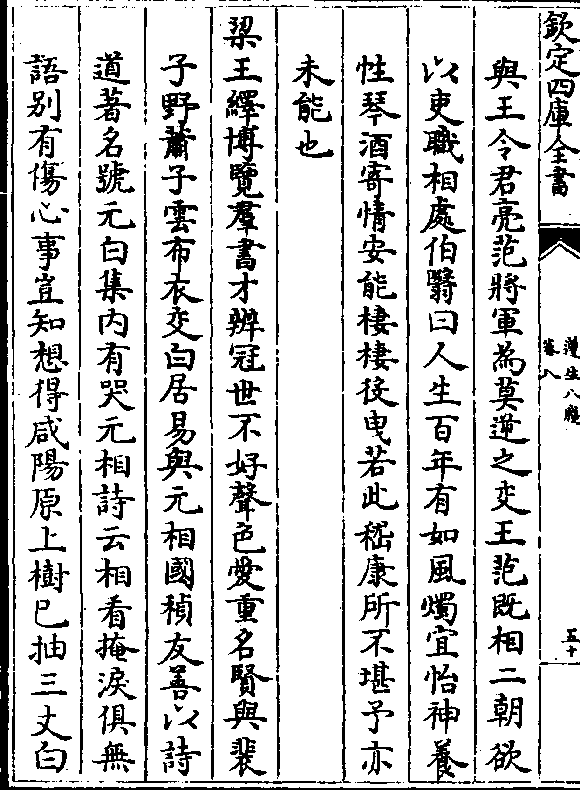 欽定四庫全書
遵生八牋
卷八
五十
與王令君亮范將軍為莫逆之交王范既相二朝欲
以吏職相處伯翳曰人生百年有如風燭宜怡神養
性琴酒寄情安能棲棲役曳若此嵇康所不堪予亦
未能也
梁王繹博覽羣書才辨冠世不好聲色愛重名賢與裴
子野蕭子雲布衣交白居易與元相國稹友善以詩
道著名號元白集内有哭元相詩云相看掩淚俱無
語别有傷心事豈知想得咸陽原上樹已抽三丈白